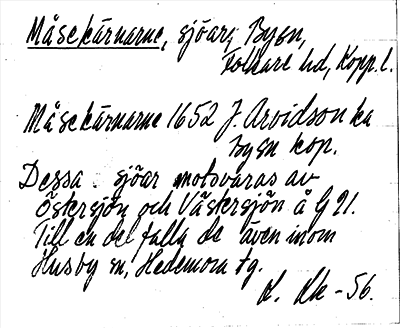 Måsekärnarne, sjöar, Bysn,
Folkare hd, Kopp. l.
Måsekärnarne 1652 J. Arvidson ka
Bysn kop.
Dessa sjöar motsvaras av
Östersjön och Västersjön å G 21.
Till en del falla de även inom
Husby sn, Hedemora tg.
-56.